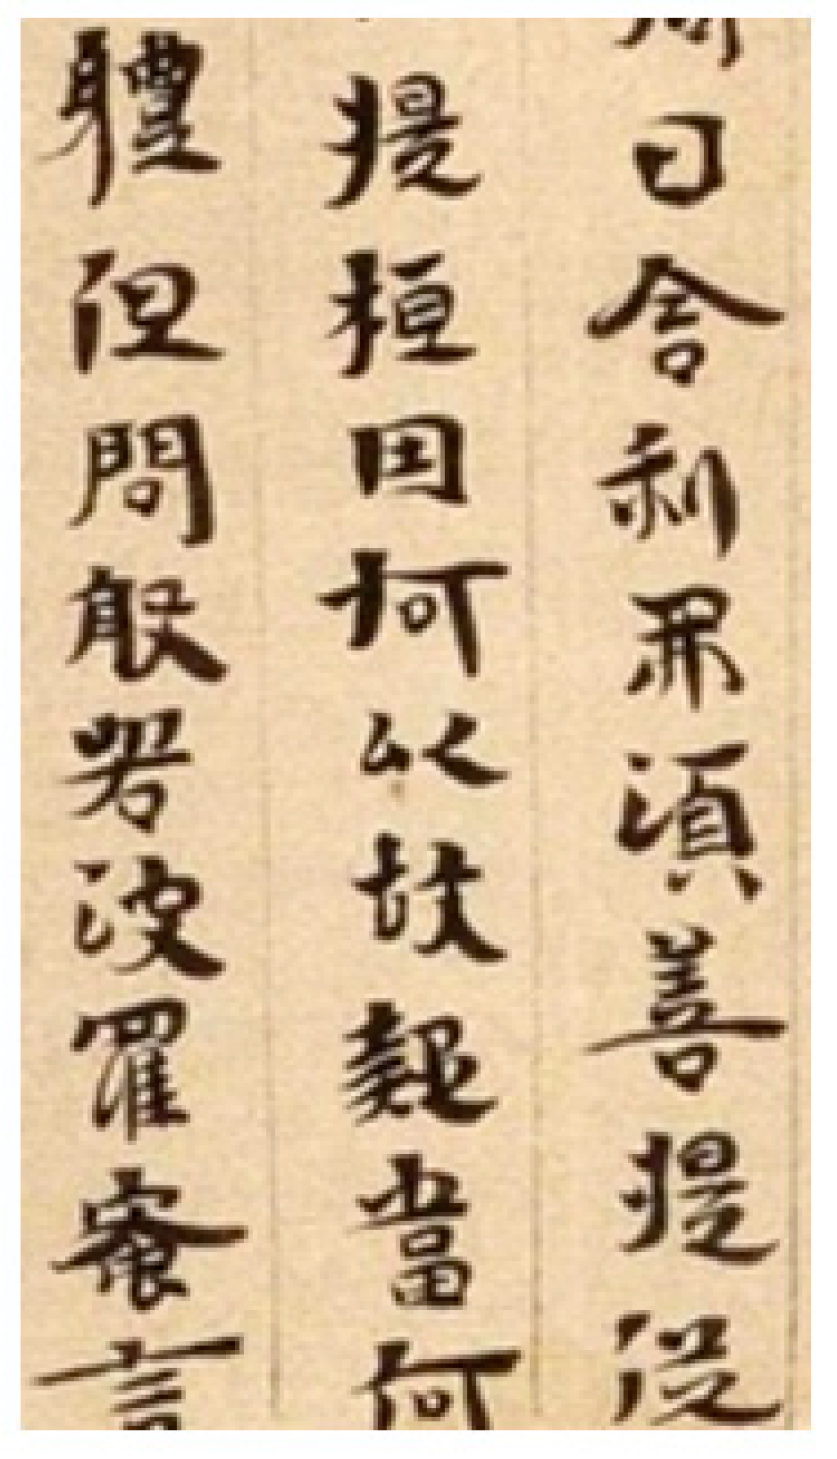 曰舍利弗須菩提
提桓因何以故當何
體但問般若波羅蜜言